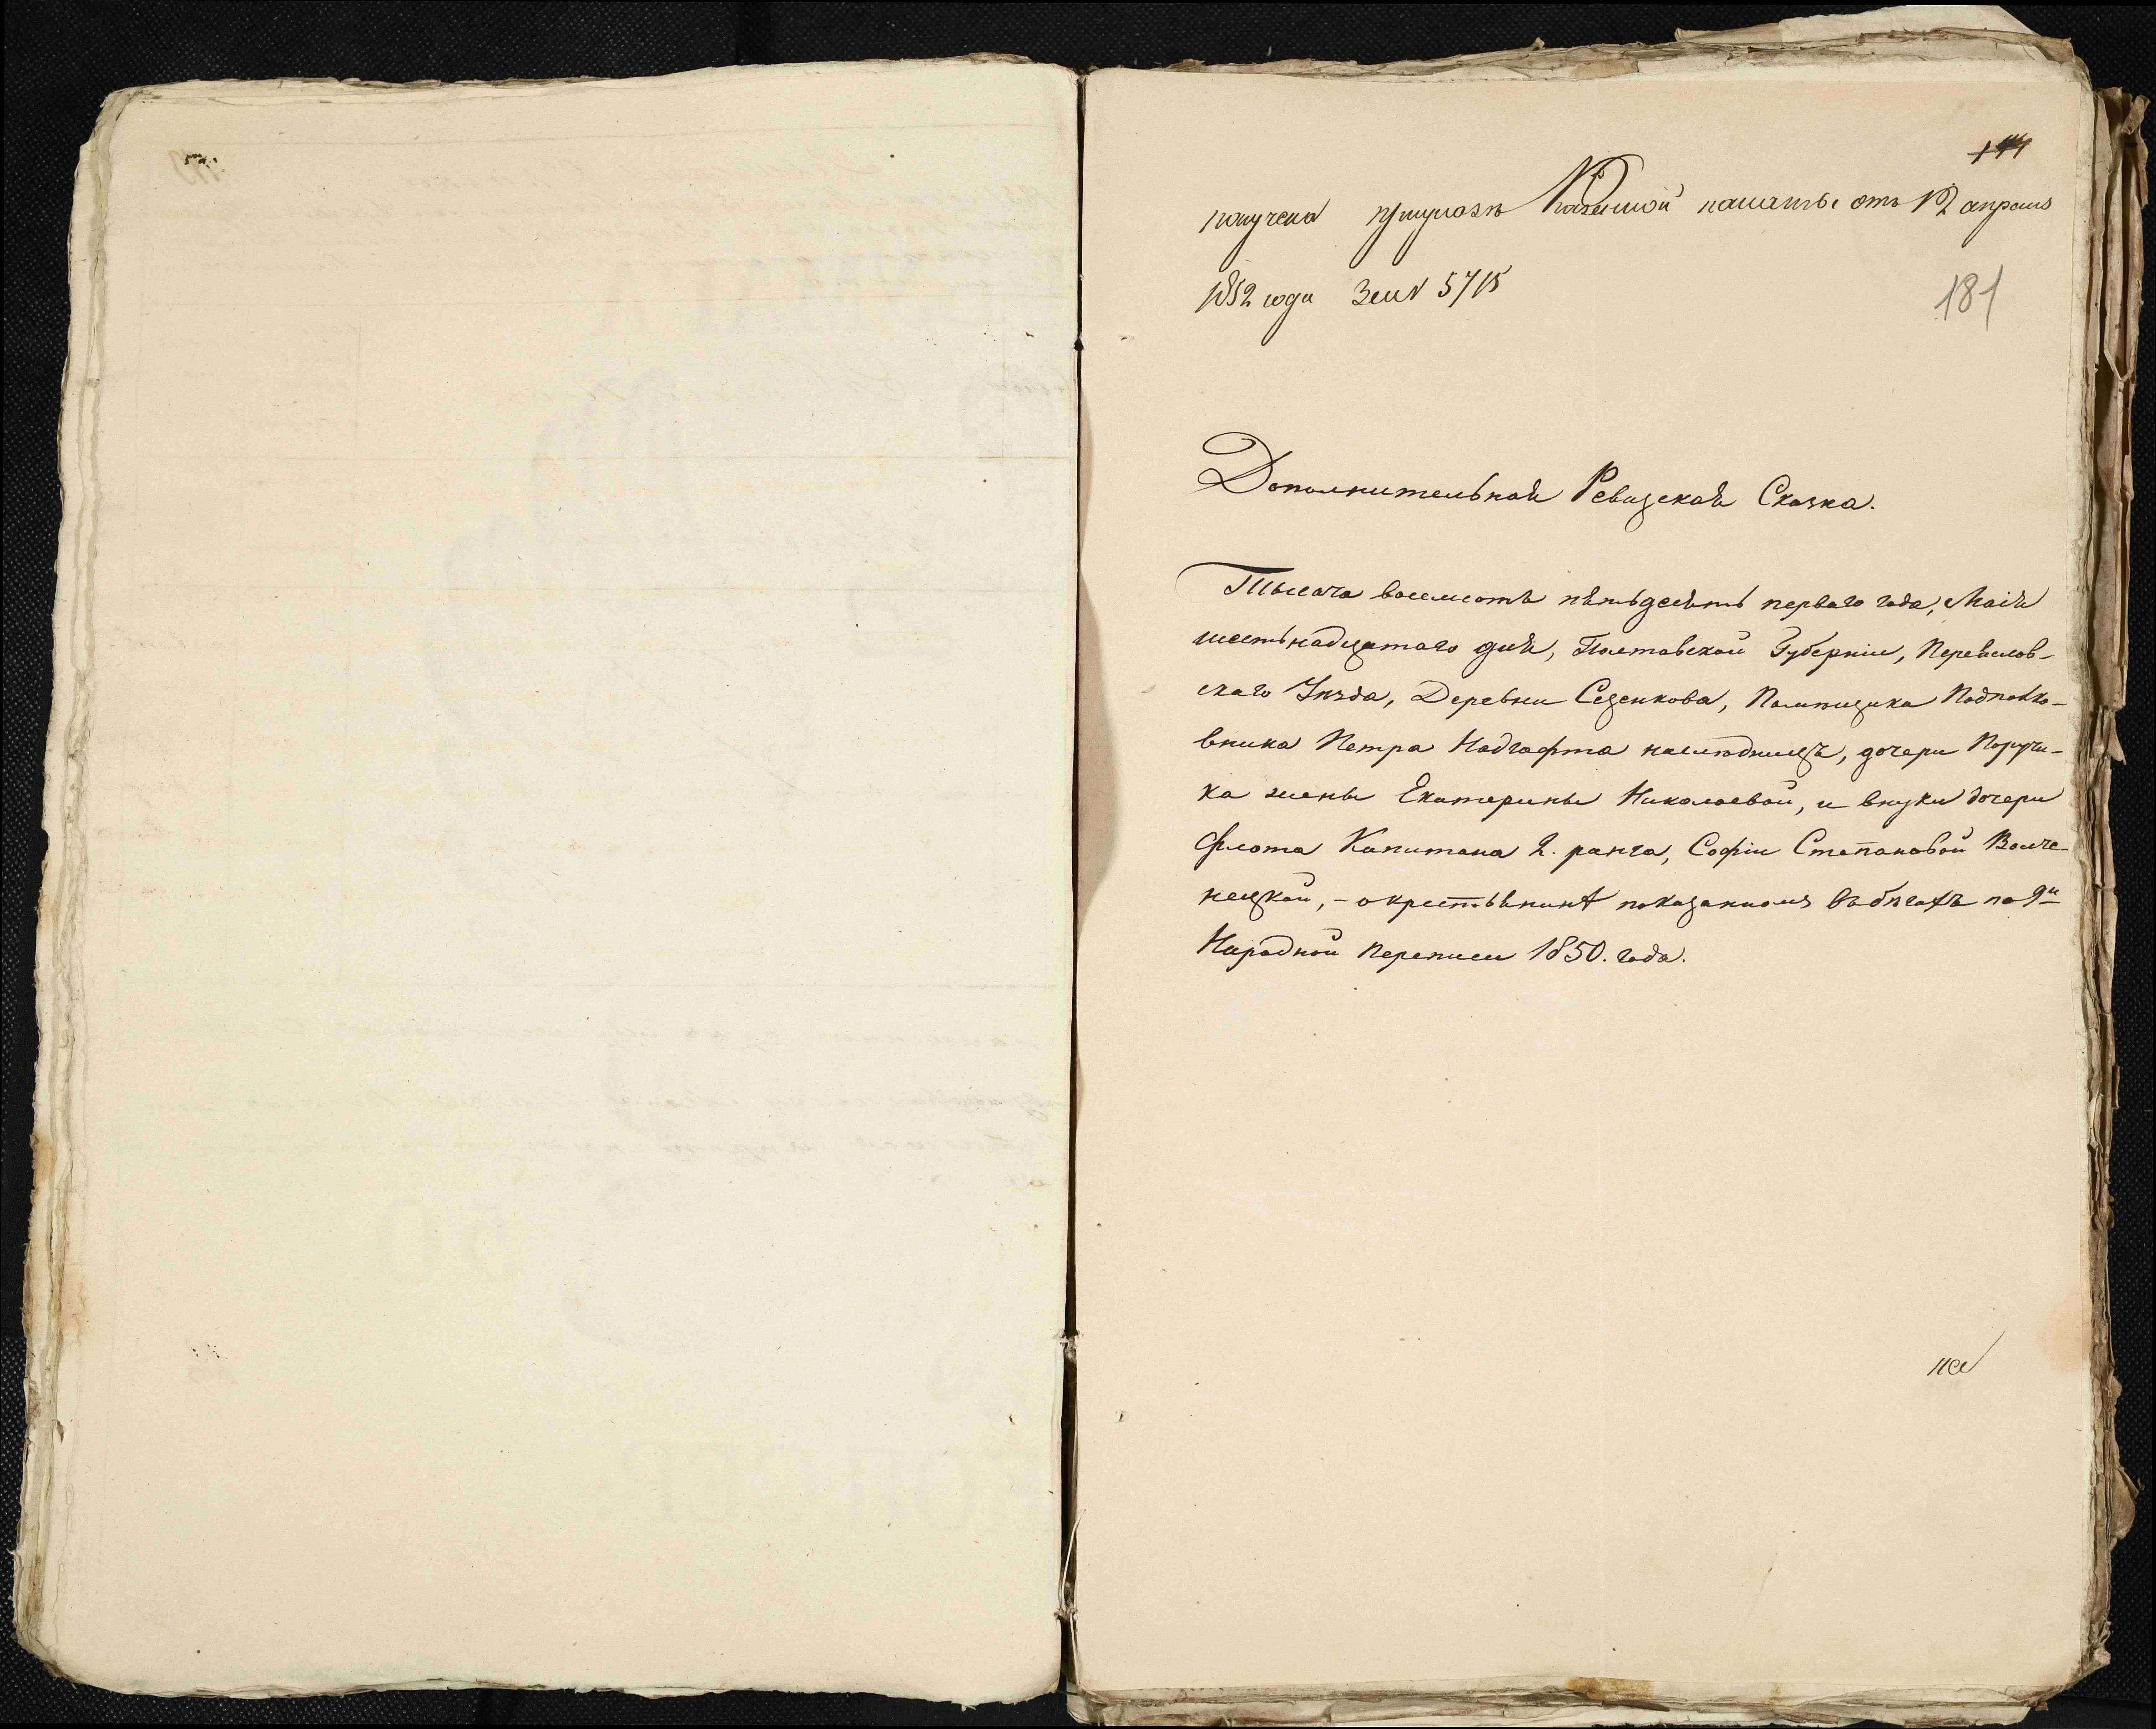 144
получена при указѣ Казенной палаты отъ 12 апрѣля
1852 года За № 5715
181
Дополнительная Ревизская Сказка.
Тысяча восемьсотъ пятьдесятъ перваго года, Маія
шестьнадцатаго дня, Полтавской Губерніи, Переяслов-
скаго Уѣзда, Деревни Сезенкова, Помѣщика Подполко-
вника Петра Надгафта наслѣдницъ, дочери Поручи-
ка жены Екатерины Николаевой, и внуки дочери
флота Капитана 2. ранга, Софіи Степановой Волче-
нецкой, - о крестьянинѣ показанномъ въ бѣгахъ по 9й
Народной переписи 1850. года.